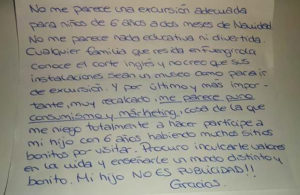 No me parece una excursión adecuada
para niños de 6 años a dos meses de Navidad
No me parece nada educativa ni divertida.
Cualquier familia que resida en Fuengirola
conoce el corte inglés y no creo que sus
instalaciones sean un museo como para ir
de excursión. Y por último y más impor-
tante, muy recalcado, me parece puro
consumismo y márketing, cosa de la que
me niego totalmente a hacer partícipe a
mi hijo con 6 años, habiendo muchos sitios
bonitos por visitar. Procuro inculcarle valores
en la vida y enseñarle un mundo distinto y
bonito. Mi hijo NO ES PUBLICIDAD!!
Gracias